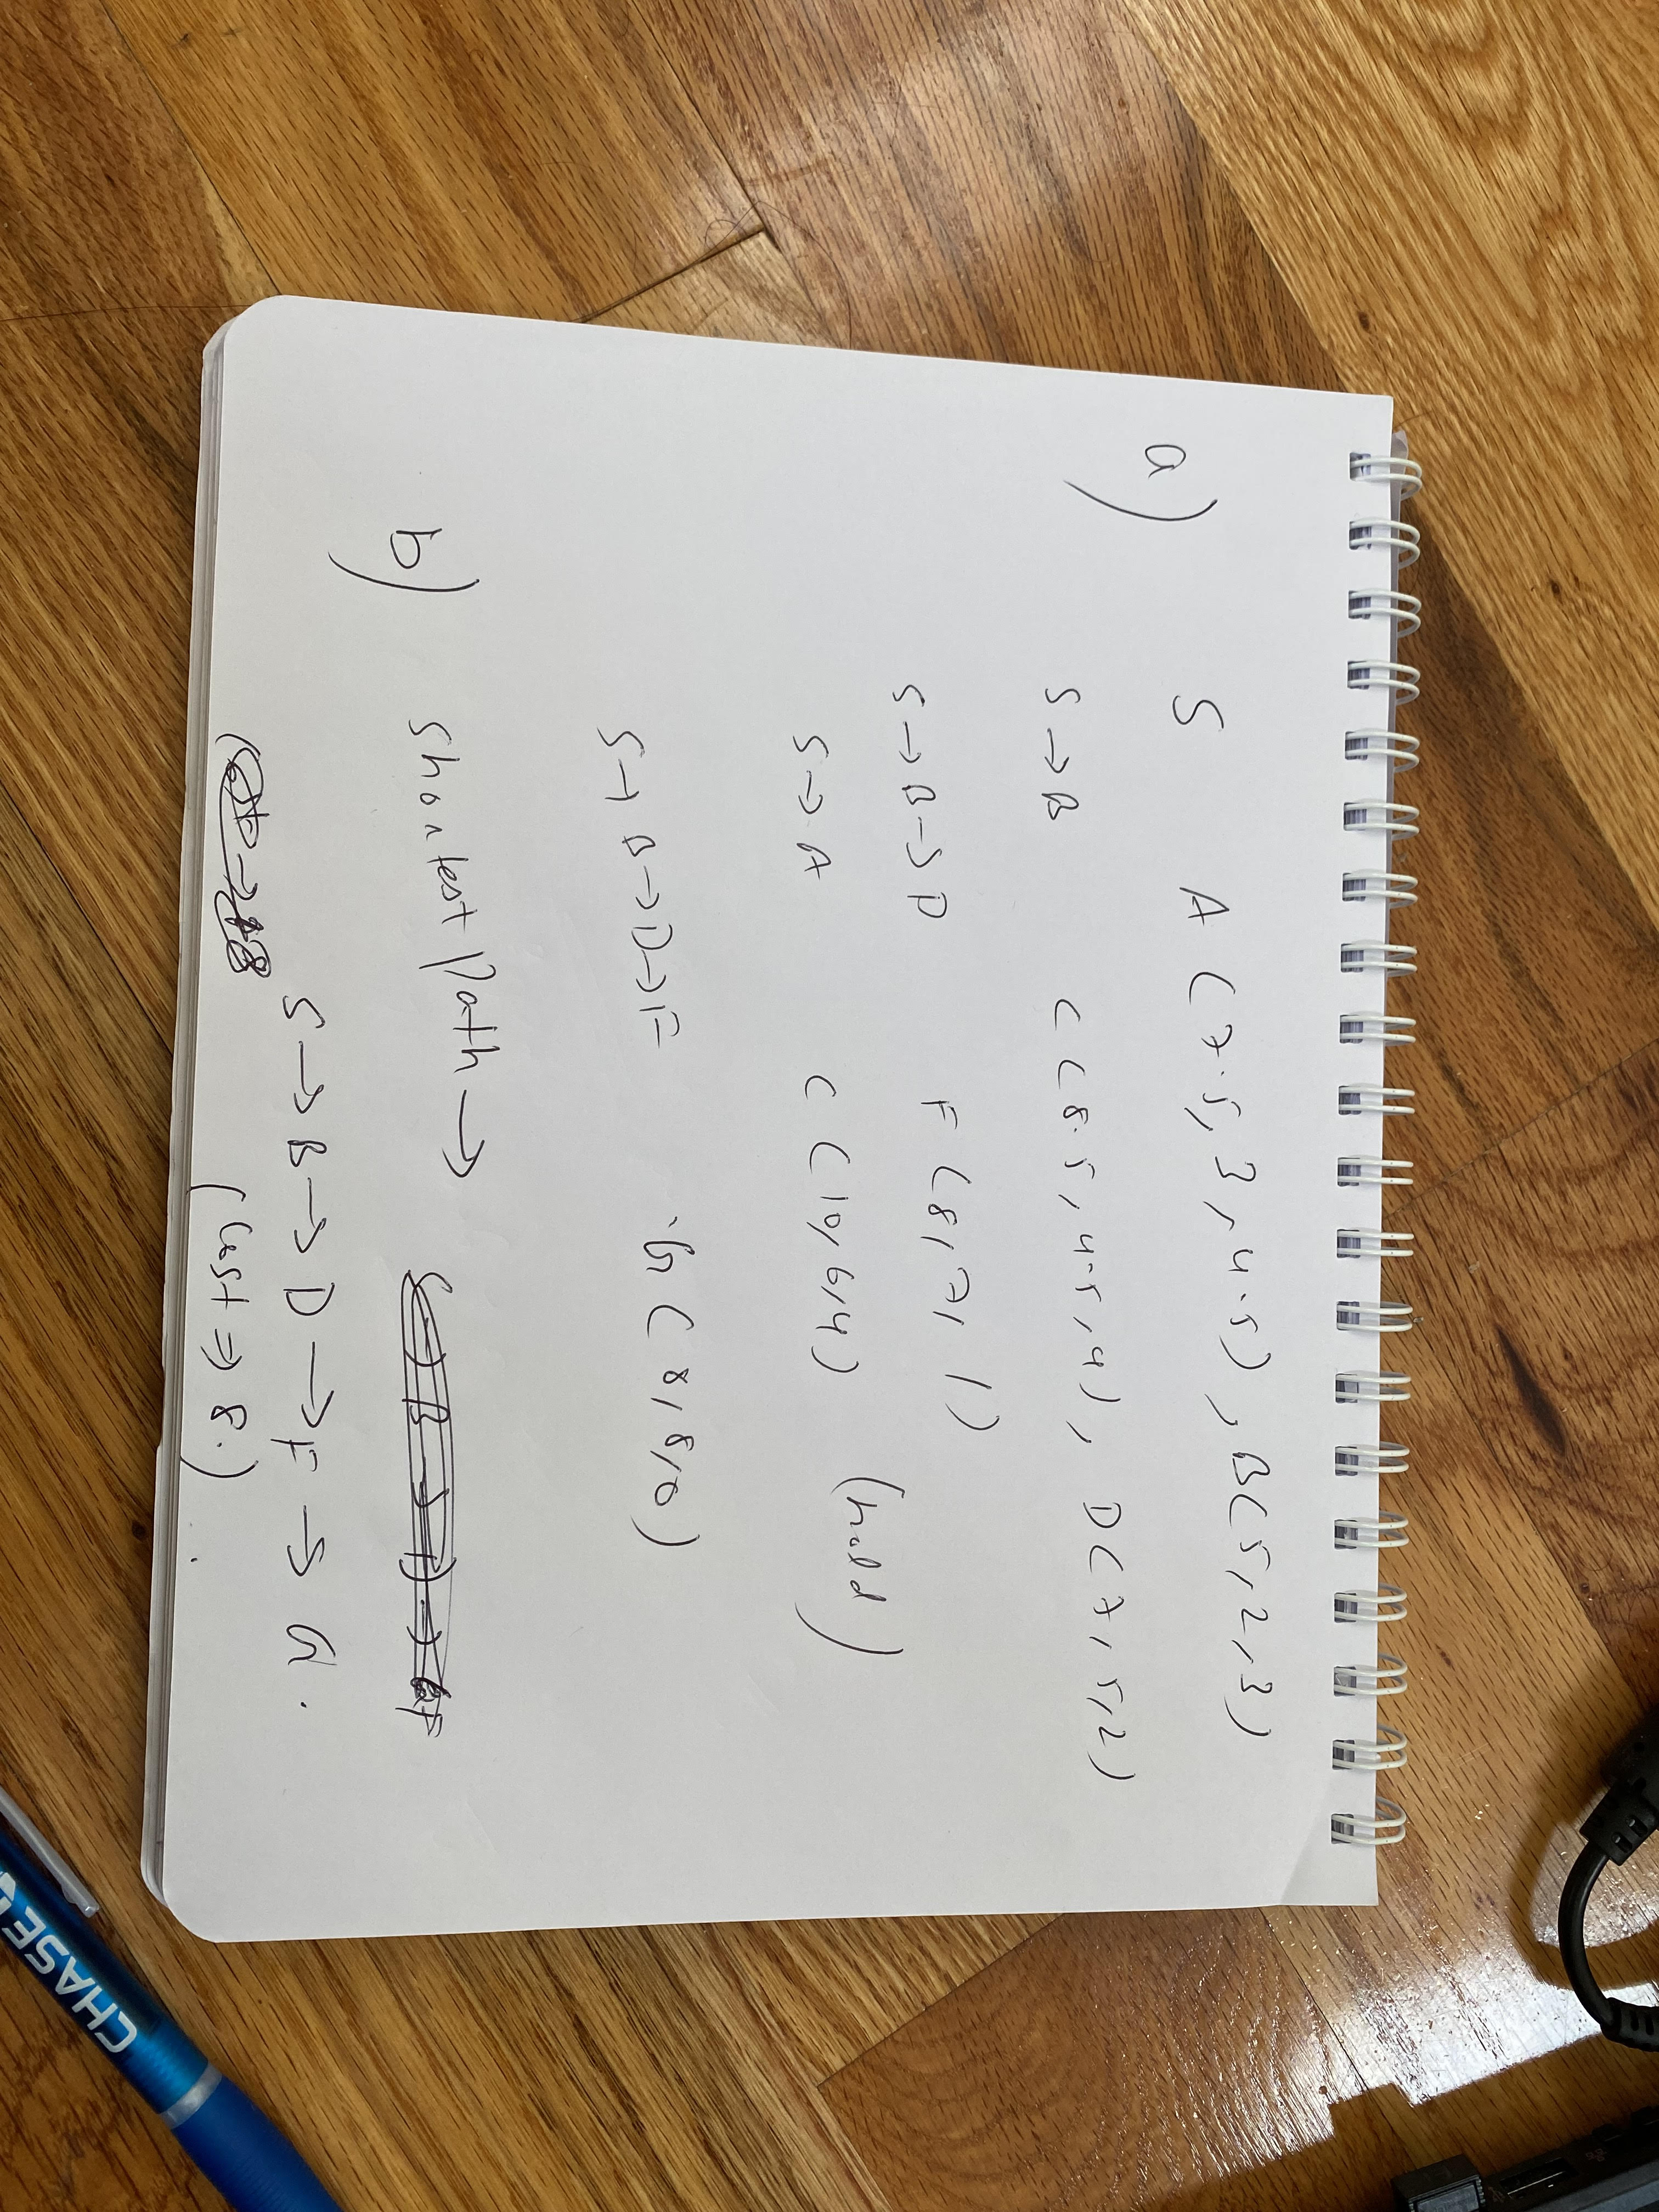 a) S A (7.5, 3, 4.5), B(5, 2, 3)
S → B C (8.5, 4.5, 4), D(7, 5, 2)
S → B → D F (8, 7, 1)
S → A C (10, 6, 4) (hold)
S → B → D → F G (8, 8, 0)
b) Shortest Path →
S → B → D → F → G.
(Cost ⇒ 8.)
CHASE